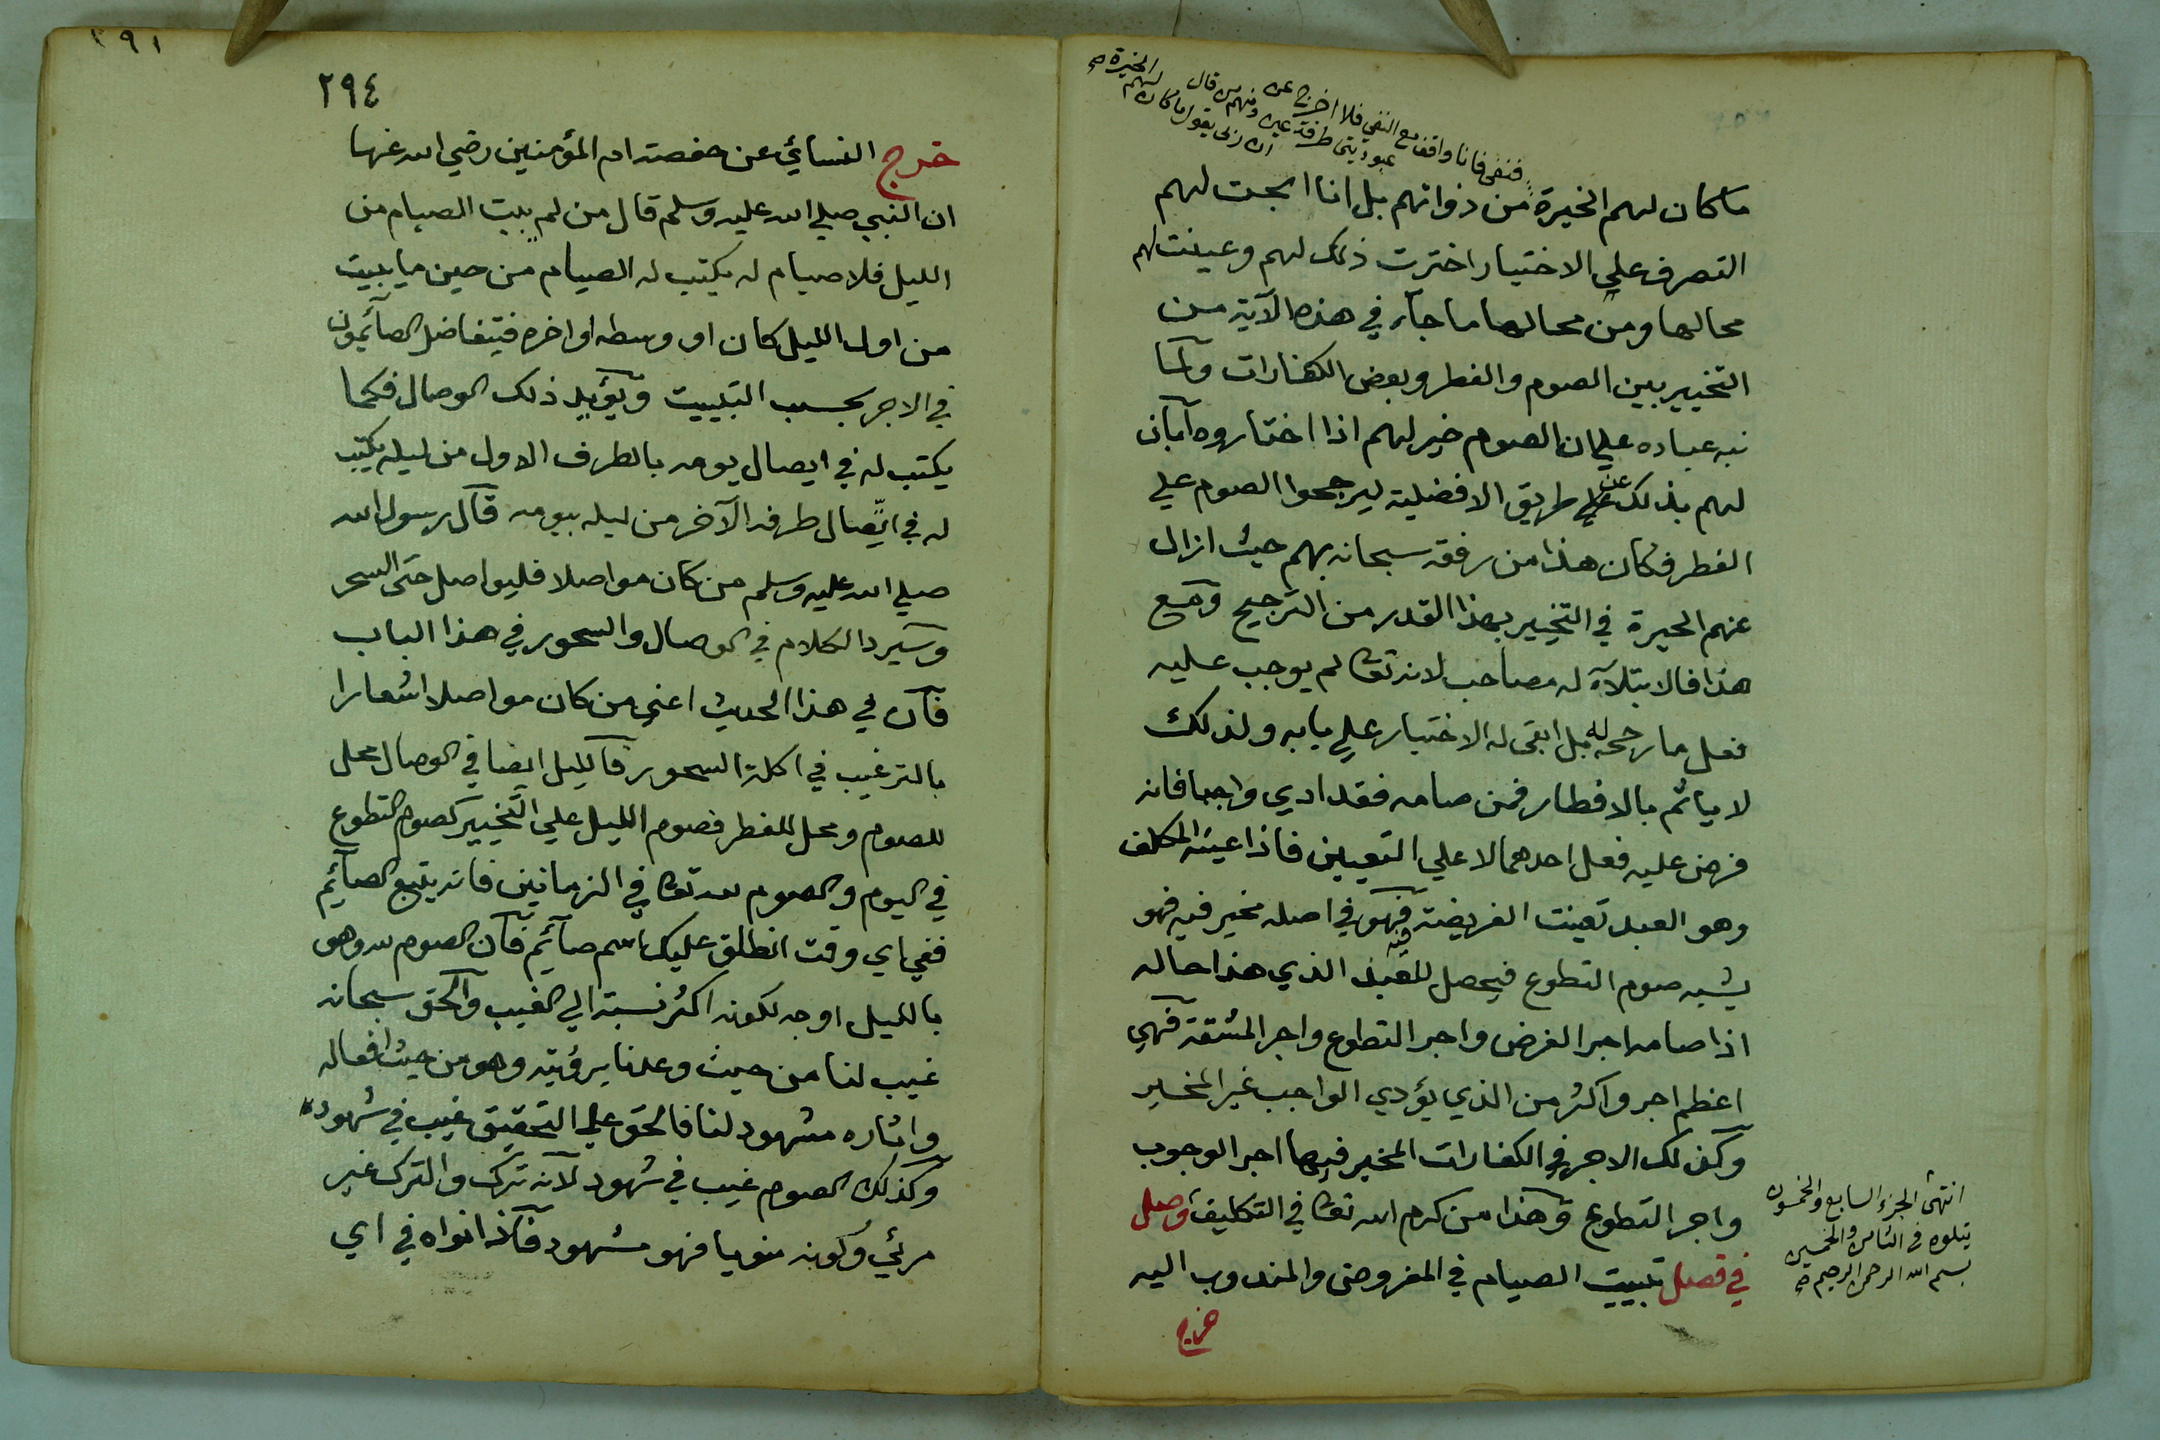 فنفى فانا واقف مع النفي فلا اخرج عن
عبوديتي طرفة عين ومنهم من قال
ان ربي يقول ما كان لهم الخيرة صح
ما كان لهم الخيرة من ذواتهم بل انا ابحت لهم
التصرف علي الاختيار اخترت ذلك لهم وعينت لهم
محالها ومن محالها ما جآء في هذه الآية من
التخيير بين الصوم والفطر وبعض الكفارات ولما
نبه عباده علي ان الصوم خير لهم اذا اختاروه ابان
لهم بذلك عن طريق الافضلية ليرجحوا الصوم علي
الفطر فكان هذا من رفقه سبحانه بهم حيث ازال
عنهم الحيرة في التخيير بهذا القدر من الترجيح ومع
هذا فالابتلآء له مصاحب لانه تعا لم يوجب عليه
فعل ما رجحه له بل ابقى له الاختيار علي بابه ولذلك
لا ياثم بالافطار فمن صامه فقد ادي واجبا فانه
فرض عليه فعل احدهما لا علي التعيين فاذا عينه المكلف
وهو العبد تعينت الفريضة فيه فهو في اصله مخير فيه فهو
يشبه صوم التطوع فيحصل للعبد الذي هذا حاله
اذا صامه اجر الفرض واجر التطوع واجر المشقة فهي
اعظم اجر واكثر من الذي يؤدي الواجب غير المخير
وكذلك الاجر في الكفارات المخير فيها اجر الوجوب
واجر التطوع وهذا من كرم الله تعا في التكليف وصل
في فصل تبييت الصيام في المفروض والمندوب اليه
خرج
انتهى الجزء السابع والخمسون
يتلوه في الثامن والخمسين
بسم الله الرحمن الرحيم صح
٢٩١
٢٩٤
خرج النسائي عن حفصة ام المؤمنين رضي الله عنها
ان النبي صلي الله عليه وسلم قال من لم يبيت الصيام من
الليل فلا صيام له يكتب له الصيام من حين ما يبيت
من اول الليل كان او وسطه او اخره فيتفاضل الصآئمون
في الاجر بحسب التبييت ويؤيد ذلك الوصال فكما
يكتب له في ايصال يومه بالطرف الاول من ليله يكتب
له في اتّصال طرفه الآخر من ليله بيومه قال رسول الله
صلي الله عليه وسلم من كان مواصلا فليواصل حتى السحر
وسيرد الكلام في الوصال والسحور في هذا الباب
فان في هذا الحديث اعني من كان مواصلا اشعارا
بالترغيب في اكلة السحور فالليل ايضا في الوصال محل
للصوم ومحل للفطر فصوم الليل علي التخيير كصوم التطوع
في اليوم والصوم لله تعا في الزمانين فانه يتبع الصآئم
ففي اي وقت انطلق عليك اسم صآئم فان الصوم لله وهو
بالليل اوجه لكونه اكثر نسبة الي الغيب والحق سبحانه
غيب لنا من حيث وعدنا برؤيته وهو من حيث افعاله
واثاره مشهود لنا فالحق علي التحقيق غيب في شهود
وكذلك الصوم غيب في شهود لانه ترك والترك غير
مرئي وكونه منويا فهو مشهود فاذا نواه في اي